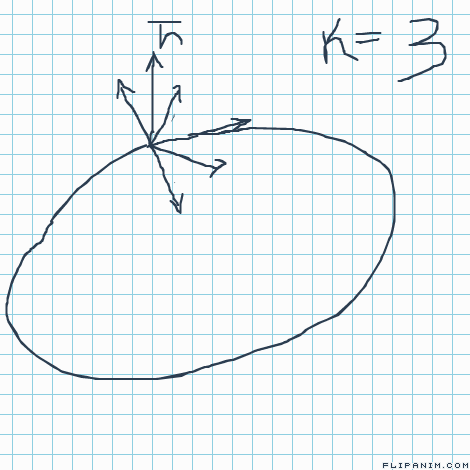 K = 3
FLIPANIM.COM